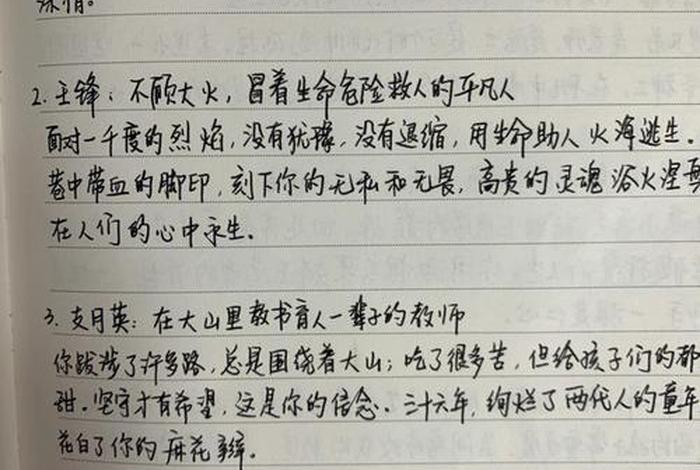 深情。
2. 王锋：不顾大火，冒着生命危险救人的平凡人
面对一千度的烈焰，没有犹豫，没有退缩，用生命助人火海逃生。
巷中带血的脚印，刻下你的无私和无畏，高贵的灵魂浴火涅
在人们的心中永生。
3. 支月英：在大山里教书育人一辈子的教师
你跋涉了许多路，总是围绕着大山；吃了很多苦，但给孩子们的都
甜。坚守才有希望，这是你的信念。三十六年，绚烂了两代人的童年
花白了你的麻花辫。